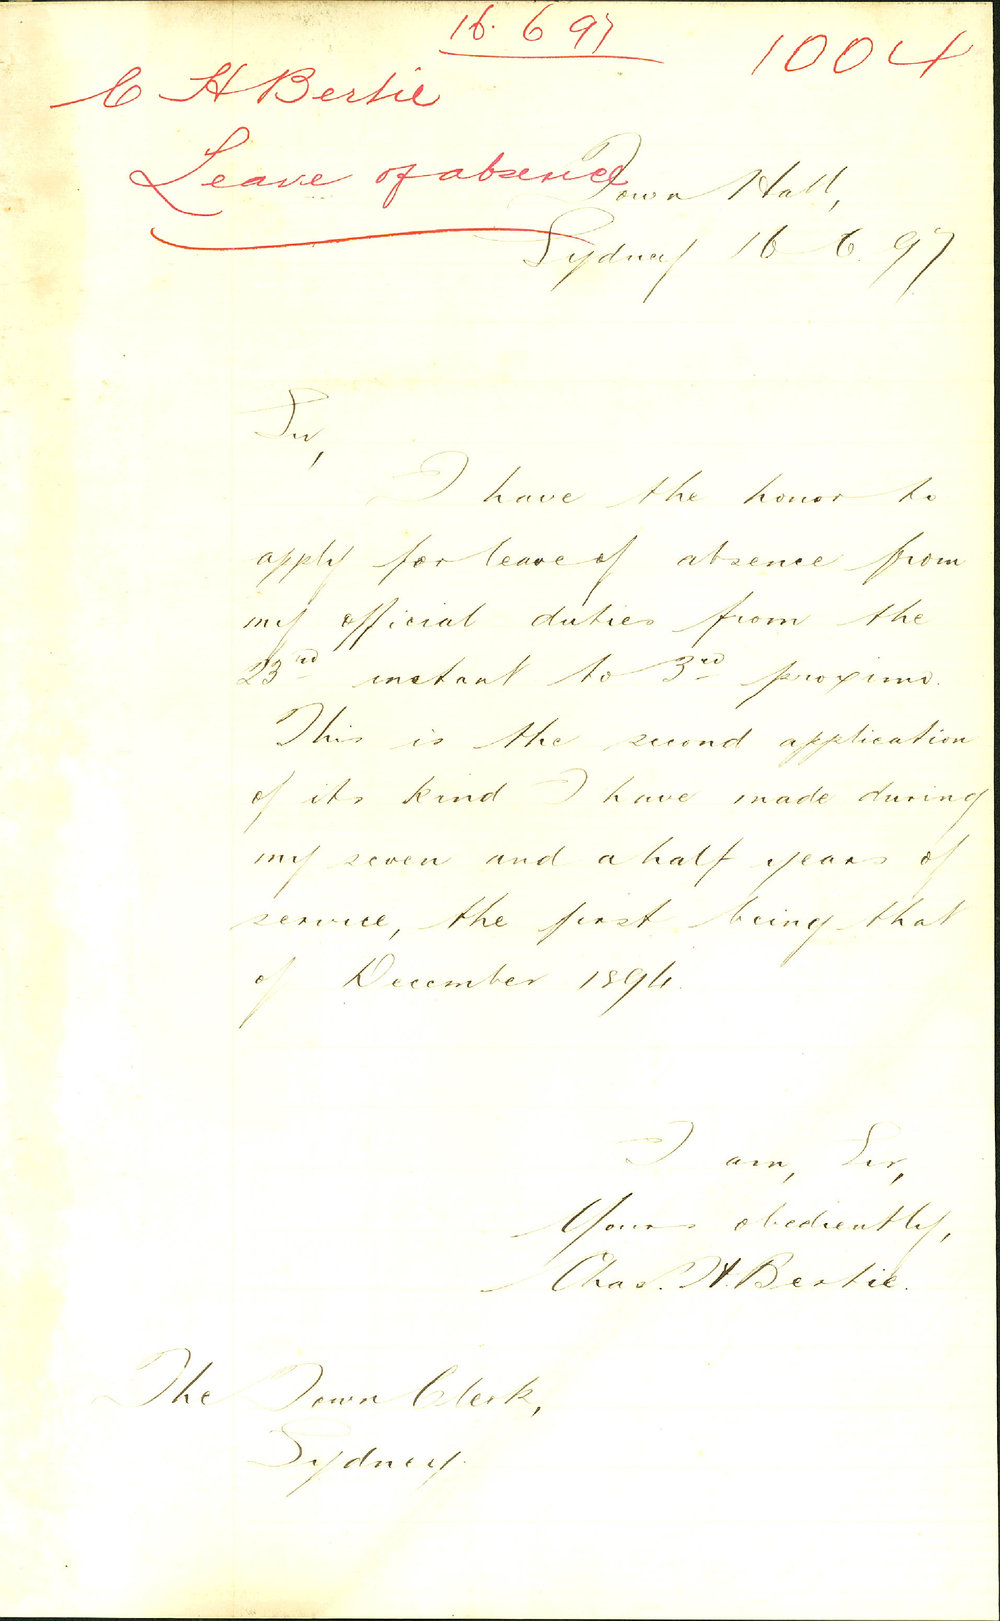 16. 6 97
1004
C H Bertie
Leave of absence
Town Hall,
Sydney 16 6. 97
Sir,
I have the honor to
apply for leave of absence from
my official duties from the
23rd instant to 3rd proximo.
This is the second application
of its kind I have made during
my seven and a half years of
service, the first being that
of December 1894.
I am, Sir,
Yours obediently,
Chas. H. Bertie.
The Town Clerk,
Sydney.